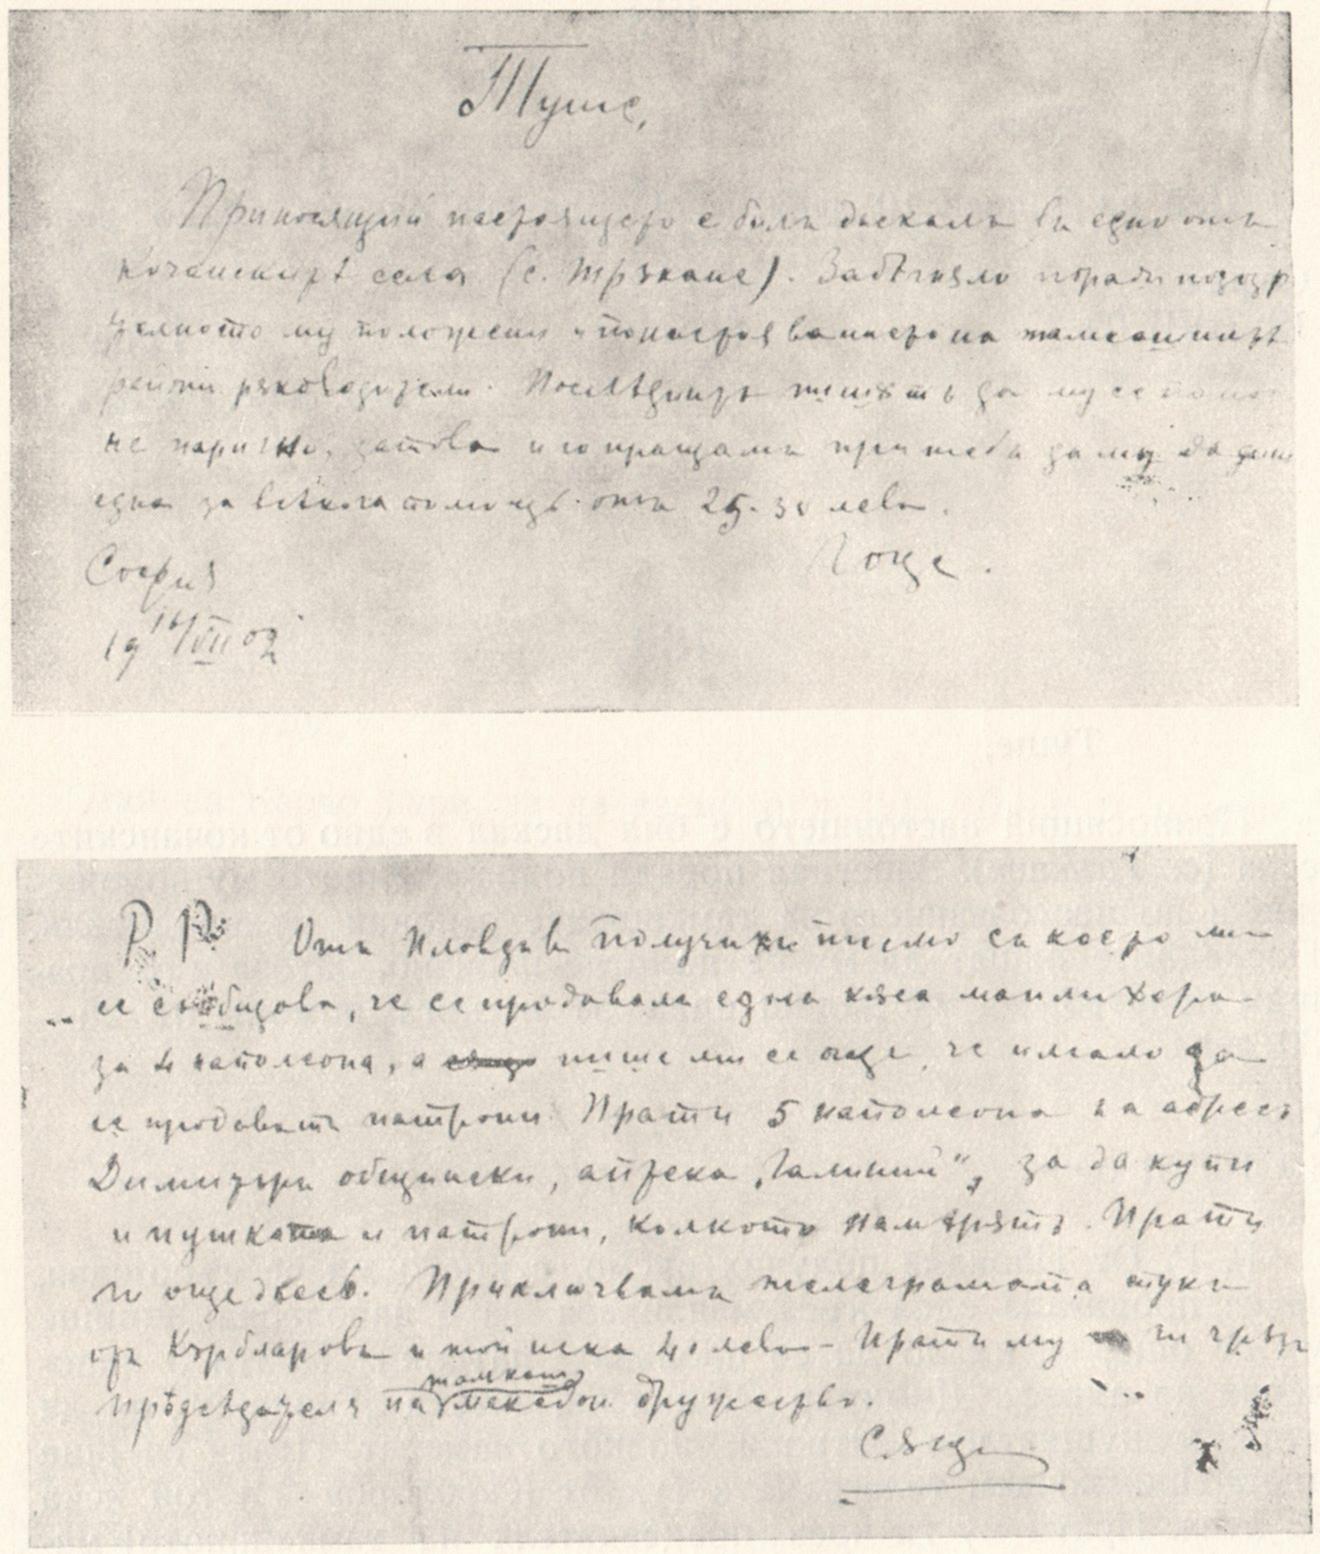 Туше,
Приносящий настоящето е билъ даскалъ въ едно отъ
Кочанскитѣ села (с. Тръкане). Забѣгнало поради подозр
ителното му положение и по настояванието на тамошнитѣ
районни рѫководители. Послѣднитѣ пишѫтъ да му се помог
не парично, затова и го пращамъ при тебѣ да му се даде
една за всѣкога помощь отъ 25-30 лева.
Гоце.
София
19 16/VII 02
P. P. Отъ Пловдивъ получихъ писмо съ което ми
се съобщава, че се продавала една къса манлихера
за 4 наполеона, а пише ми се още, че имало да
се продаватъ патрони. Прати 5 наполеона на адресъ
Димитъръ общински, аптека „Галиний“, за да купи
и пушката и патрони, колкото намѣрятъ. Прати
ги още днесь. Приключвамъ телеграмата тукъ
отъ Кърбларовъ и той иска 40 лева – Прати му ги чрѣзъ
прѣдседателя на тамкаш. македон. дружество.
Сѫщи